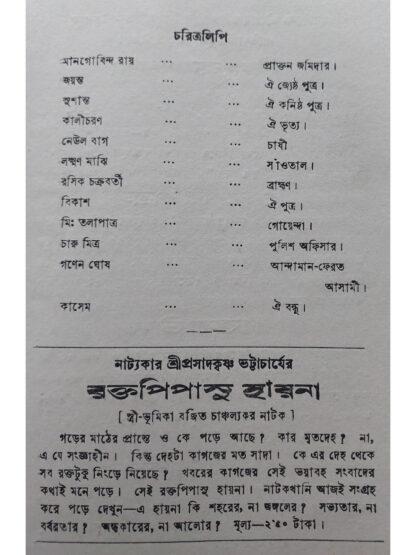 চরিত্রলিপি
মানগোবিন্দ রায় ... ... প্রাক্তন জমিদার।
জয়ন্ত ... ... ঐ জ্যেষ্ঠ পুত্র।
সুশান্ত ... ... ঐ কনিষ্ঠ পুত্র।
কালীচরণ ... ... ঐ ভৃত্য।
নেউল বাগ ... ... চাষী
লক্ষ্মণ মাঝি ... ... সাঁওতাল।
রসিক চক্রবর্তী ... ... ব্রাহ্মণ।
বিকাশ ... ... ঐ পুত্র।
মিঃ তলাপাত্র ... ... গোয়েন্দা।
চারু মিত্র ... ... পুলিশ অফিসার।
গণেন ঘোষ ... ... আন্দামান-ফেরত
আসামী।
কাসেম ... ... ঐ বন্ধু।
নাট্যকার শ্রীপ্রসাদকৃষ্ণ ভট্টাচার্যের
রক্তপিপাসু হায়না
[ স্ত্রী-ভূমিকা বর্জিত চাঞ্চল্যকর নাটক ]
গড়ের মাঠের প্রান্তে ও কে পড়ে আছে? কার মৃতদেহ? না,
এ যে সংজ্ঞাহীন। কিন্তু দেহটা কাগজের মত সাদা। কে এর দেহ থেকে
সব রক্তটুকু নিংড়ে নিয়েছে? খবরের কাগজের সেই ভয়াবহ সংবাদের
কথাই মনে পড়ে। সেই রক্তপিপাসু হায়না। নাটকখানি আজই সংগ্রহ
করে পড়ে দেখুন—এ হায়না কি শহরের, না জঙ্গলের? সভ্যতার, না
বর্বরতার? অন্ধকারের, না আলোর? মূল্য—২'৫০ টাকা।